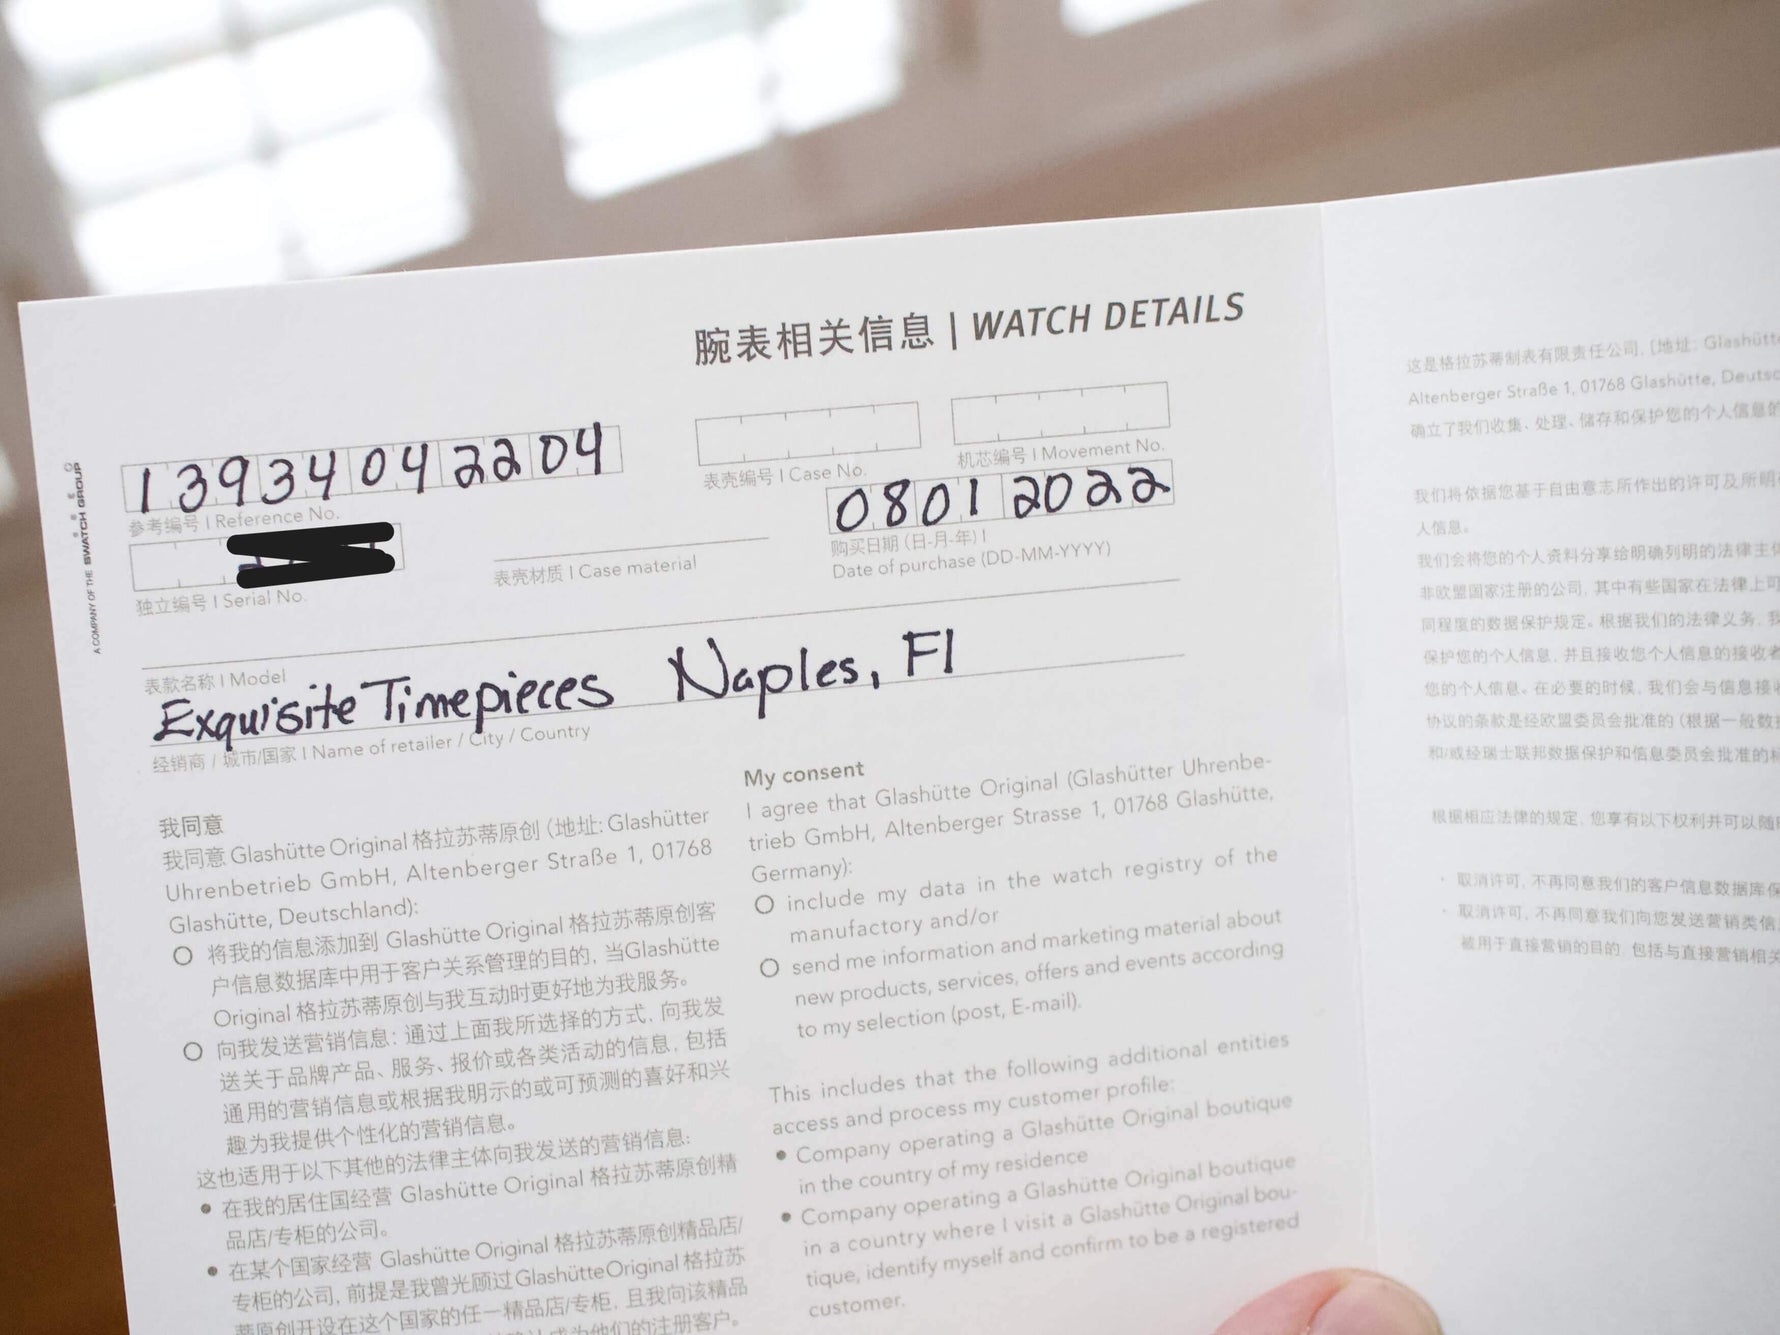 腕表相关信息 | WATCH DETAILS
13934042204
参考编号 | Reference No.
表壳编号 | Case No.
机芯编号 | Movement No.
08012022
购买日期 (日-月-年) |
Date of purchase (DD-MM-YYYY)
独立编号 | Serial No.
表壳材质 | Case material
表款名称 | Model
Exquisite Timepieces Naples, Fl
经销商 / 城市/国家 | Name of retailer / City / Country
A COMPANY OF THE SWATCH GROUP
我同意
我同意 Glashütte Original 格拉苏蒂原创 (地址: Glashütter
Uhrenbetrieb GmbH, Altenberger Straße 1, 01768
Glashütte, Deutschland):
将我的信息添加到 Glashütte Original 格拉苏蒂原创客
户信息数据库中用于客户关系管理的目的, 当Glashütte
Original 格拉苏蒂原创与我互动时更好地为我服务。
向我发送营销信息: 通过上面我所选择的方式, 向我发
送关于品牌产品、服务、报价或各类活动的信息, 包括
通用的营销信息或根据我明示的或可预测的喜好和兴
趣为我提供个性化的营销信息。
这也适用于以下其他的法律主体向我发送的营销信息:
• 在我的居住国经营 Glashütte Original 格拉苏蒂原创精
品店/专柜的公司。
• 在某个国家经营 Glashütte Original 格拉苏蒂原创精品店/
专柜的公司, 前提是我曾光顾过Glashütte Original 格拉苏
蒂原创开设在这个国家的任一精品店/专柜, 且我向该精品
成为他们的注册客户。
My consent
I agree that Glashütte Original (Glashütter Uhrenbe-
trieb GmbH, Altenberger Strasse 1, 01768 Glashütte,
Germany):
include my data in the watch registry of the
manufactory and/or
send me information and marketing material about
new products, services, offers and events according
to my selection (post, E-mail).
This includes that the following additional entities
access and process my customer profile:
• Company operating a Glashütte Original boutique
in the country of my residence
• Company operating a Glashütte Original boutique
in a country where I visit a Glashütte Original bou-
tique, identify myself and confirm to be a registered
customer.
这是格拉苏蒂制表有限责任公司, [地址: Glashütte
Altenberger Straße 1, 01768 Glashütte, Deutsc
确立了我们收集、处理、储存和保护您的个人信息的
我们将依据您基于自由意志所作出的许可及所明
人信息。
我们会将您的个人资料分享给明确列明的法律主体
非欧盟国家注册的公司, 其中有些国家在法律上可
同程度的数据保护规定。根据我们的法律义务, 我
保护您的个人信息, 并且接收您个人信息的接收者
您的个人信息。在必要的时候, 我们会与信息接收
协议的条款是经欧盟委员会批准的 (根据一般数据
和/或经瑞士联邦数据保护和信息委员会批准的标
根据相应法律的规定, 您享有以下权利并可以随时
· 取消许可, 不再同意我们的客户信息数据库保
· 取消许可, 不再同意我们向您发送营销类信息
被用于直接营销的目的, 包括与直接营销相关